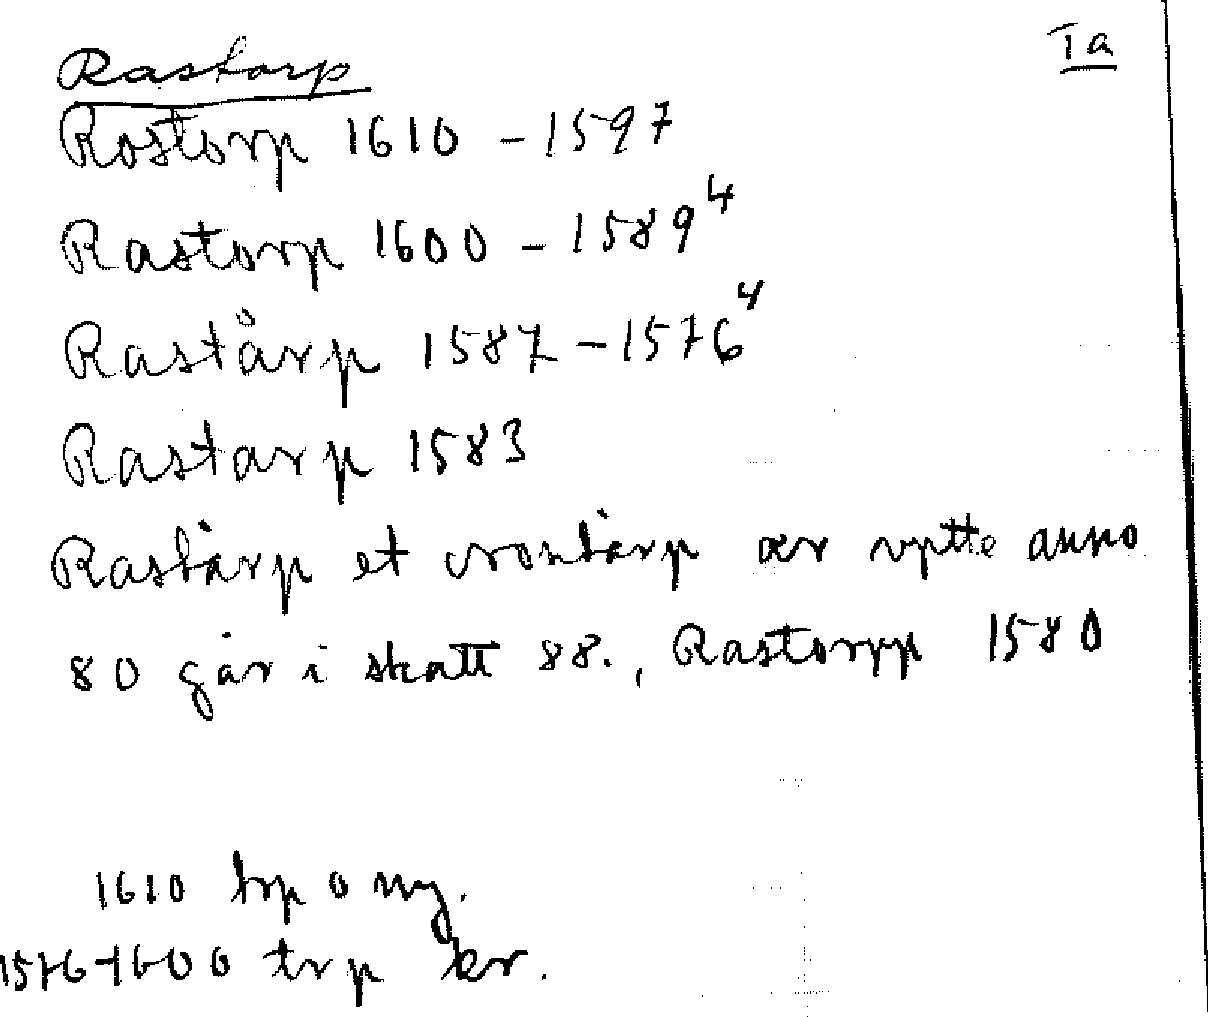 Rastorp Ta
Rostorp 1610 - 1597
Rastorp 1600 - 1589⁴
Rastårp 1587 - 1576⁴
Rastarp 1583
Rastårp et crontårp ær vptte anno
80 går i skatt 88., Rastorpp 1580
1610 trp o ny.
1576-1600 trp kr.